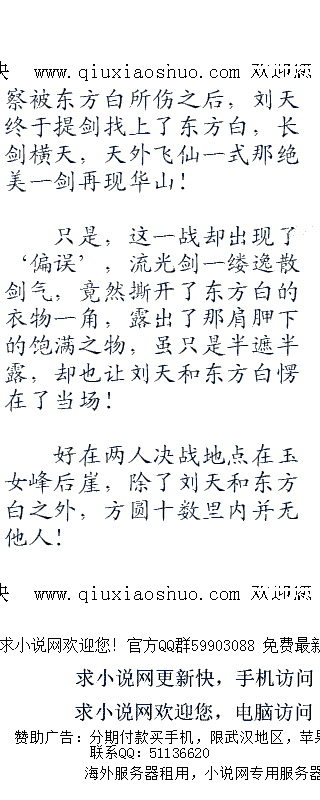 快 www.qiuxiaoshuo.com 欢迎您
察被东方白所伤之后，刘天
终于提剑找上了东方白，长
剑横天，天外飞仙一式那绝
美一剑再现华山！
只是，这一战却出现了
‘偏误’，流光剑一缕逸散
剑气，竟然撕开了东方白的
衣物一角，露出了那肩胛下
的饱满之物，虽只是半遮半
露，却也让刘天和东方白愣
在了当场！
好在两人决战地点在玉
女峰后崖，除了刘天和东方
白之外，方圆十数里内并无
他人！
快 www.qiuxiaoshuo.com 欢迎您
求小说网欢迎您！官方QQ群59903088 免费最新
求小说网更新快，手机访问
求小说网欢迎您，电脑访问
赞助广告：分期付款买手机，限武汉地区，苹果
联系QQ：51136620
海外服务器租用，小说网专用服务器